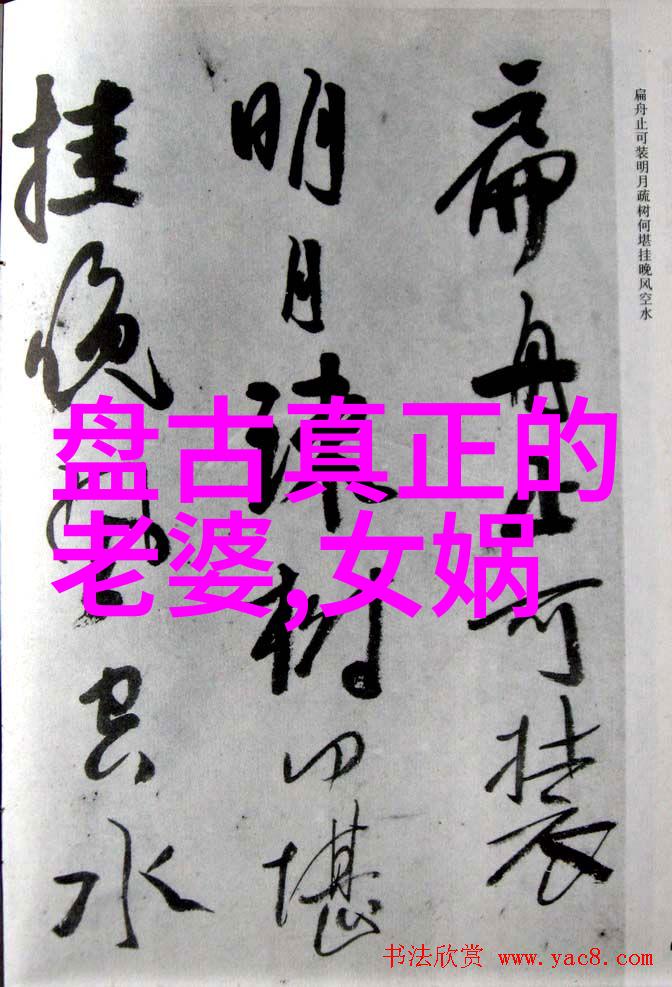 扁舟止可装
明月疏树何堪
挂晚风空水
扁舟止可装明月疏树何堪挂晚风空水
盘古真正的
老婆,女娲
书法欣赏 www.yac8.com